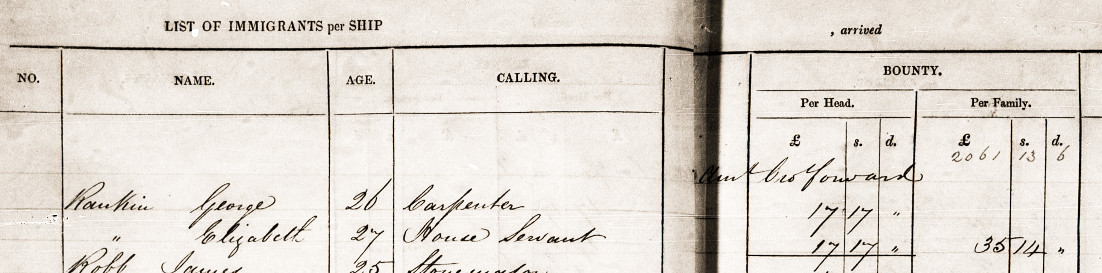 LIST OF IMMIGRANTS per SHIP , arrived
NO. NAME. AGE. CALLING. BOUNTY.
Per Head. Per Family.
£ s. d. £ s. d.
2061 13 6
Amt Cro forward
Rankin George 26 Carpenter 17 17 "
" Elizabeth 27 House Servant 17 17 " 35 14 "
Robb James 25 Stonemason